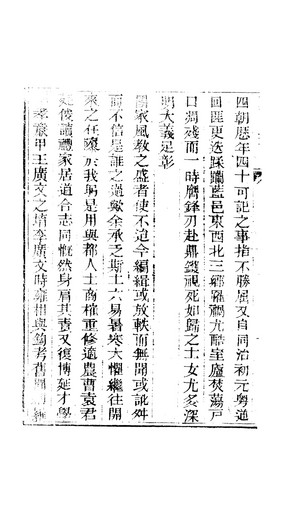 四朝歷年四十可記之事指不勝屈又自同治初元粵逆
回匪更迭蹂躪藍邑東西北三鄉罹禍尤酷室廬焚蕩戸
口凋殘而一時膺鋒刃赴鼎鑊視死如歸之士女尤多深
明大義足彰
國家風敎之盛者使不迨今編緝或放軼而無聞或訛舛
而不信是誰之過歟余承乏斯土六易暑寒大懼繼往開
來之在爾於我躬是用與都人士商榷重修適農曹袁君
廷俊讀禮家居道合志同慨然身肩其責又復博延才學
孝廉甲王廣文之 李廣文時 相與鉤考舊